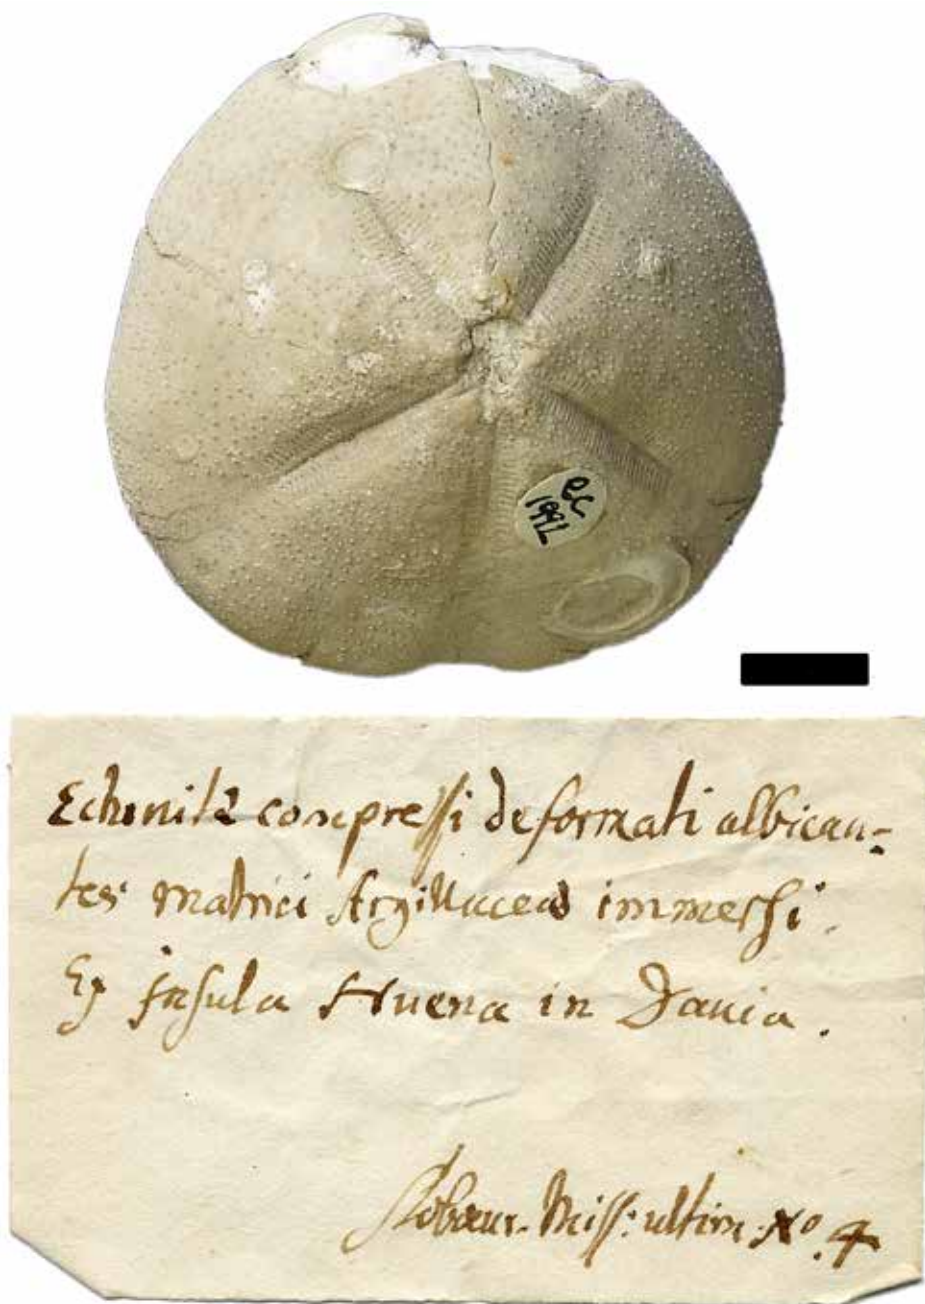 ec
1992
Echinitæ compressi deformati albican=
tes matrici Argillaceæ immersi.
Ex jnsula Huena in Dania.
Stobæus. Miss: ultim. No. 4